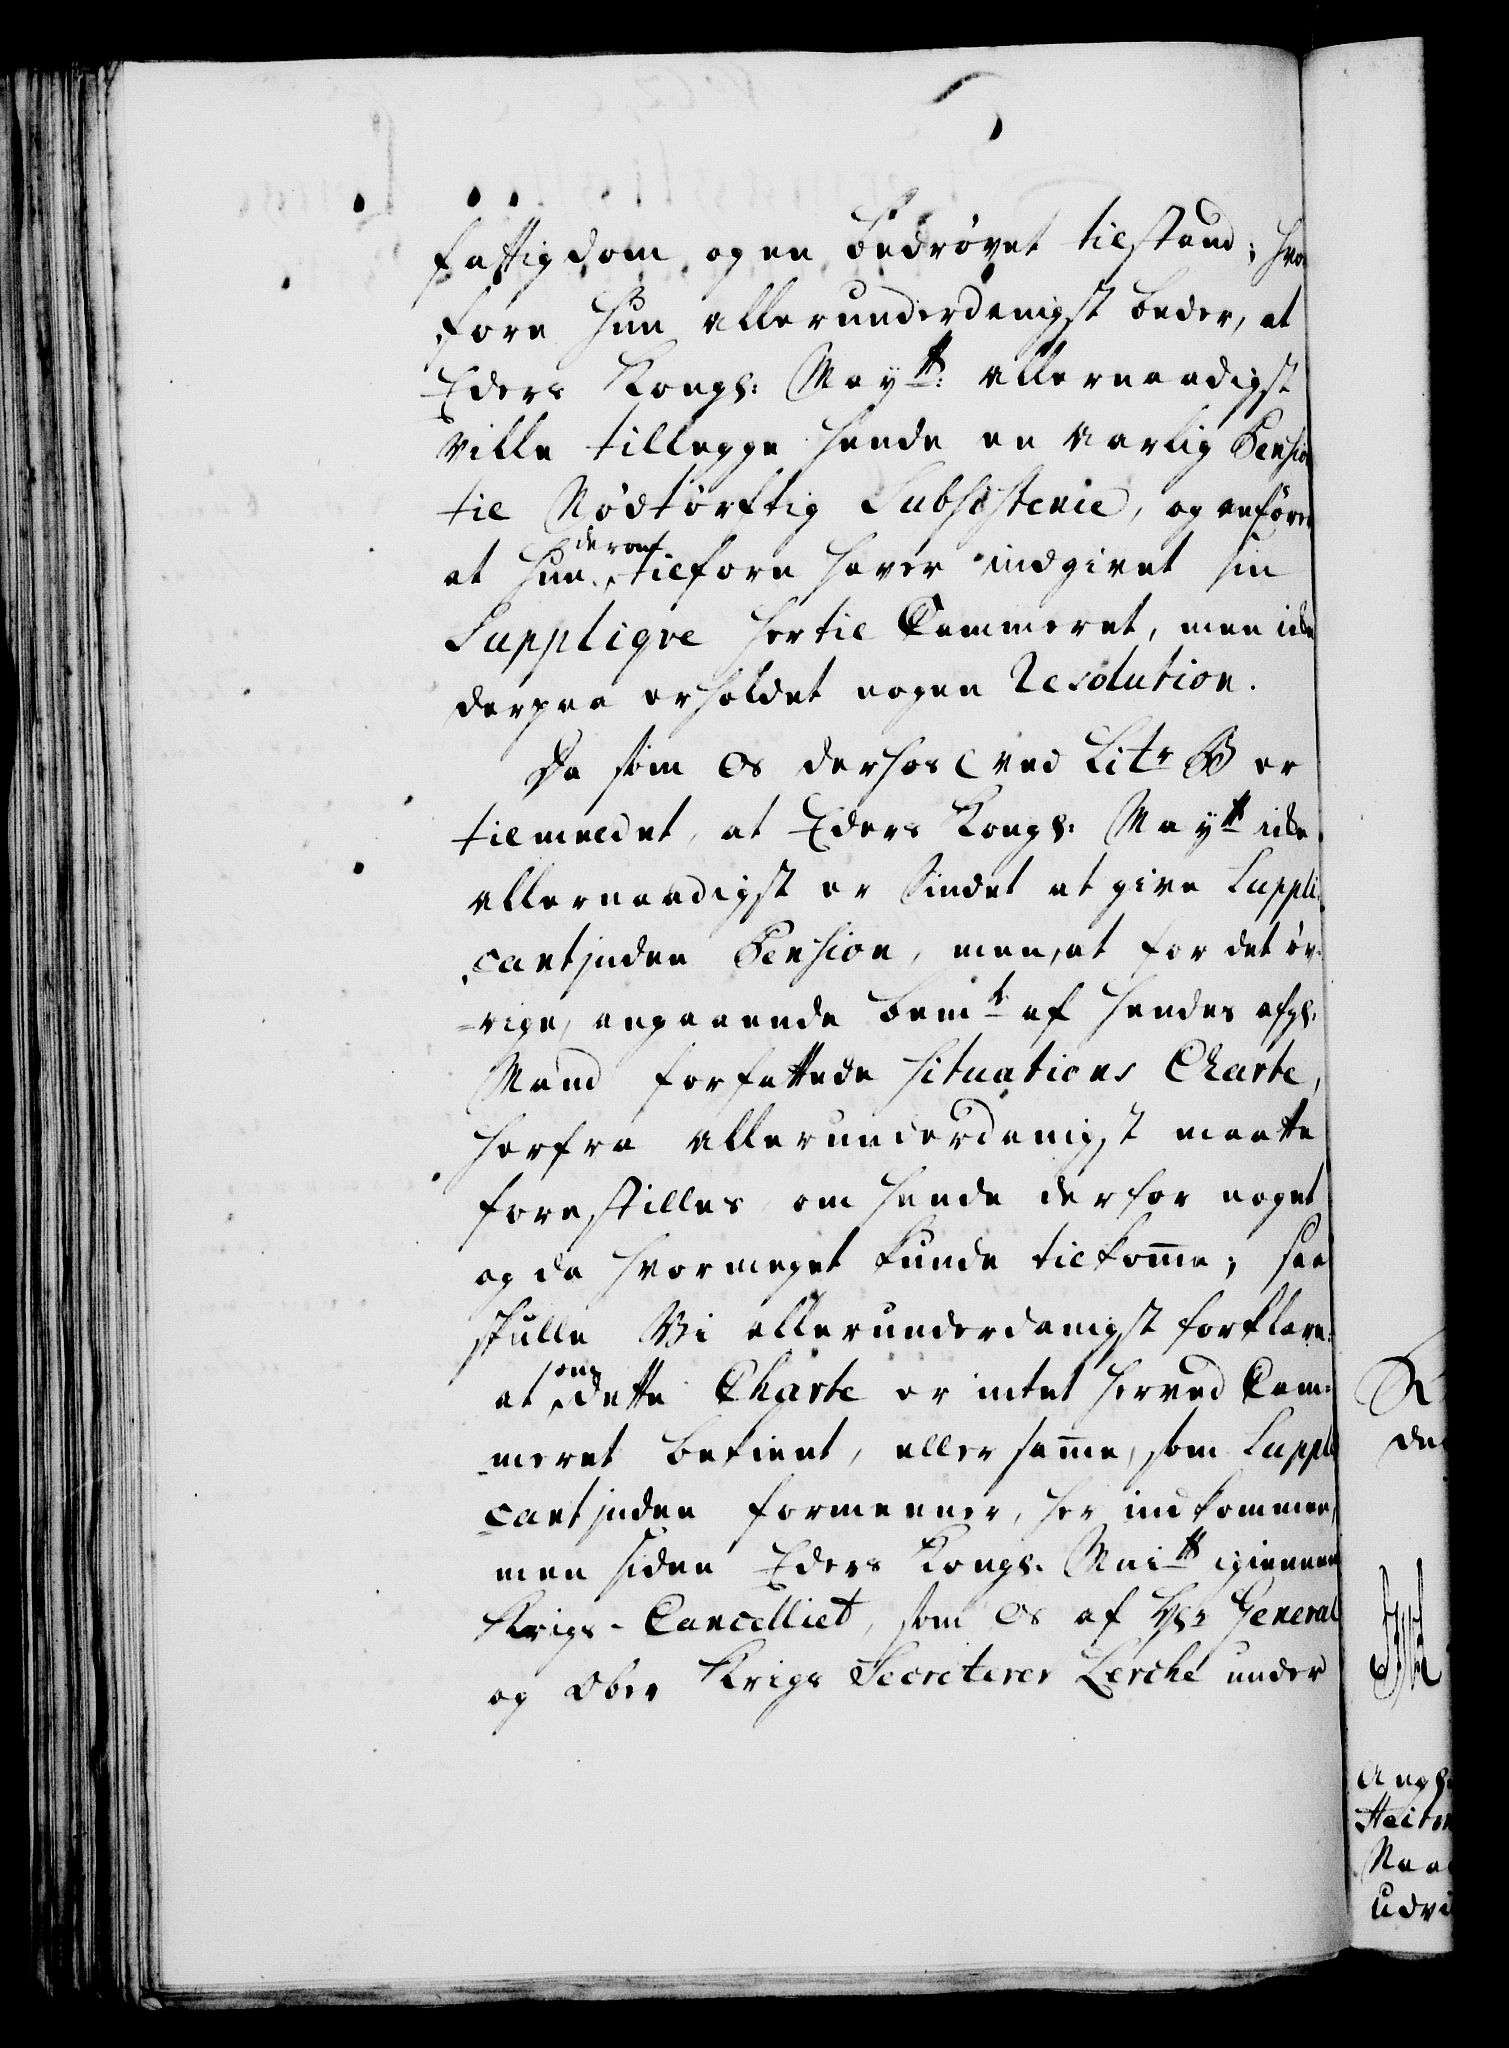 fattigdom, og en bedrøvet tilstand; hvor
fore hun allerunderdanigst beder, at
Eders Kongl: May<sup>tt</sup>: allernaadigst
ville tillegge hende en aarlig Pension
til Nødtørftig Subsistence, og anfører
at hun deromtilforn haver indgivet sin
Suppliqve hertil Cammeret, men icke
derpaa erholdet nogen Resolution.
Da som os derhos ved Litr B er
tilmeldet, at Eders Kongl: May<sup>tt</sup> icke
allernaadigst er sindet at give Suppli-
cantinden Pension, men, at for det öv-
rige, angaaende bem<sup>te</sup> af hendes afgl.
Mand forfattede Situations Charte,
herfra allerunderdanigst maatte
forestilles, om hende derfor noget
og da hvormeget kunde tilkomme; saa
skulle Vi allerunderdanigst forklare:
at om dette Charte er intet herved Cam-
meret bekient, eller samme, som Suppli-
cantinden formeener, her indkommen,
men siden Eders Kongl. Mai<sup>tt</sup> igiennem
Krigs-Cancelliet, som os af Hr General
og Ober Krigs Secreterer Lerche under
dag
Angl:
Heitm
Naa
Udvi